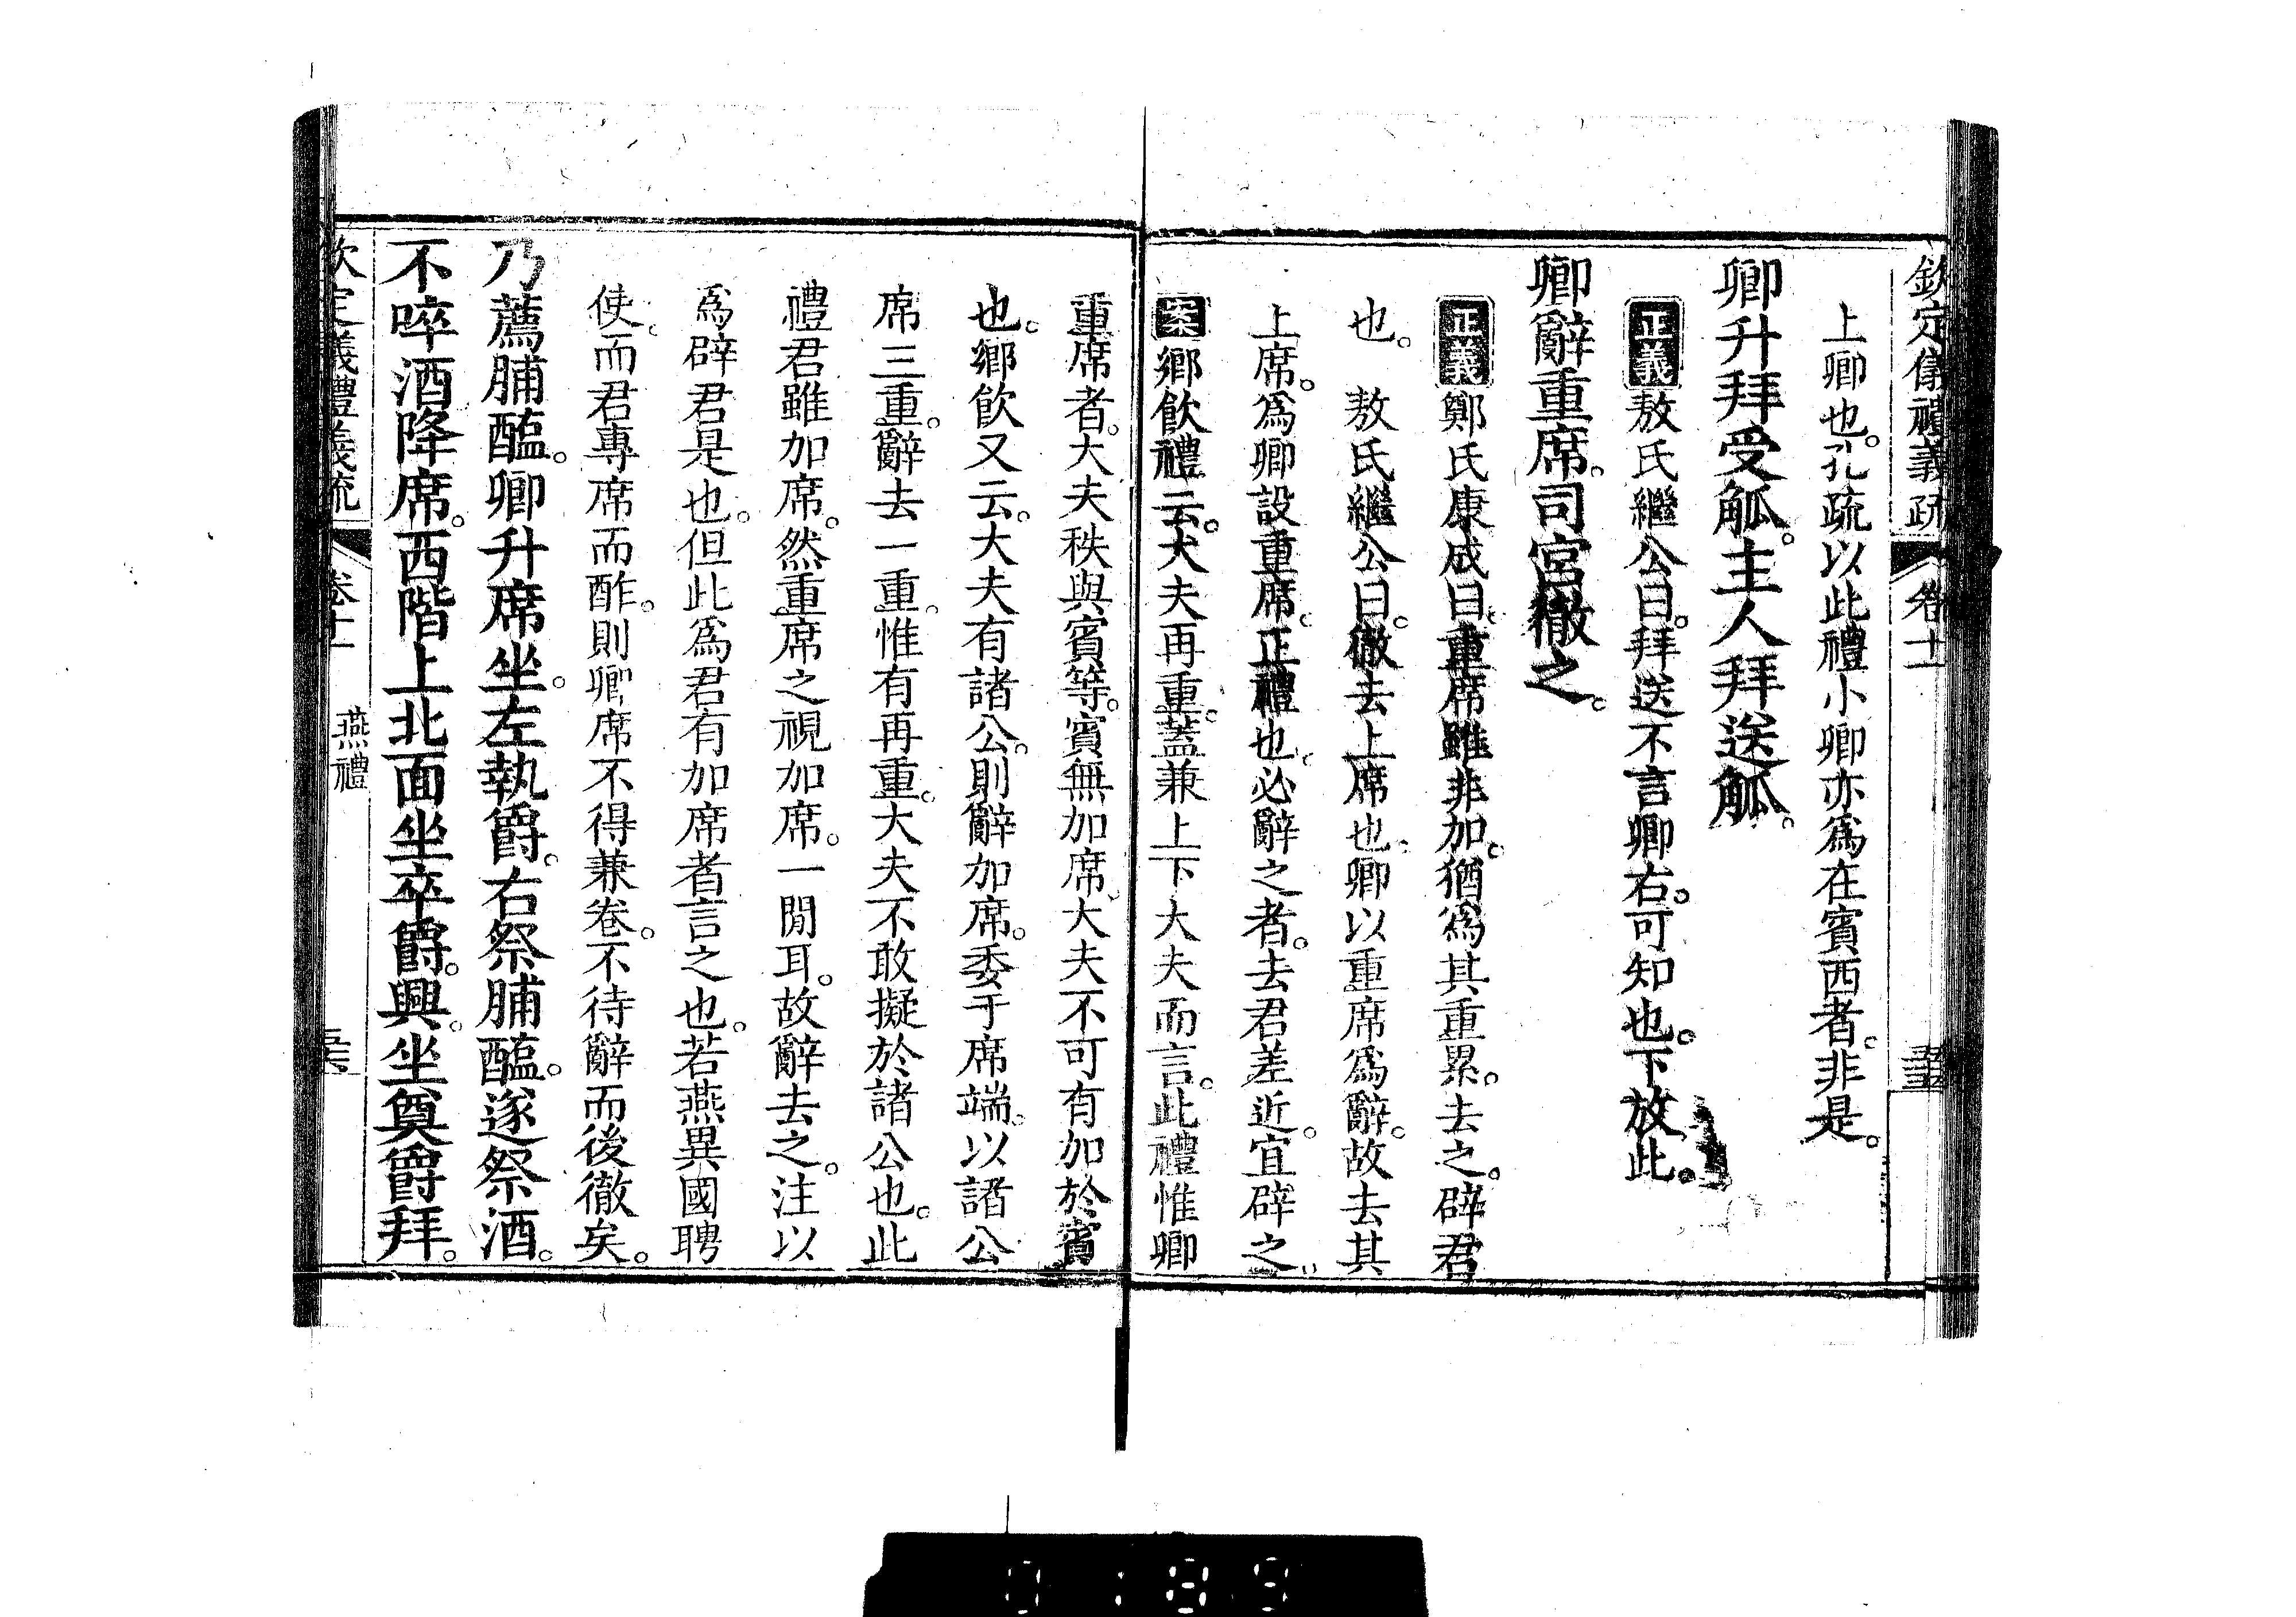 欽定儀禮義疏 卷十一
上卿也。孔疏以此禮小卿亦爲在賓西者。非是。
卿升拜受觚。主人拜送觚。
正義 敖氏繼公曰。拜送不言卿右。可知也。下放此。
卿辭重席。司宮徹之。
正義 鄭氏康成曰。重席雖非加。猶爲其重累。去之。辟君
也。 敖氏繼公曰。徹去上席也。卿以重席爲辭。故去其
上席。爲卿設重席。正禮也。必辭之者。去君差近。宜辟之。
案 鄉飲禮云。大夫再重。蓋兼上下大夫而言。此禮惟卿
重席者。大夫秩與賓等。賓無加席。大夫不可有加於賓
也。鄉飲又云。大夫有諸公。則辭加席。委于席端。以諸公
席三重。辭去一重。惟有再重。大夫不敢擬於諸公也。此
禮君雖加席。然重席之視加席。一閒耳。故辭去之。注以
爲辟君是也。但此爲君有加席者言之也。若燕異國聘
使。而君專席而酢。則卿席不得兼卷。不待辭而後徹矣。
乃薦脯醢。卿升席坐。左執爵。右祭脯醢。遂祭酒。
不啐酒。降席。西階上北面坐卒爵。興。坐奠爵拜。
欽定儀禮義疏 卷十一 燕禮
0188